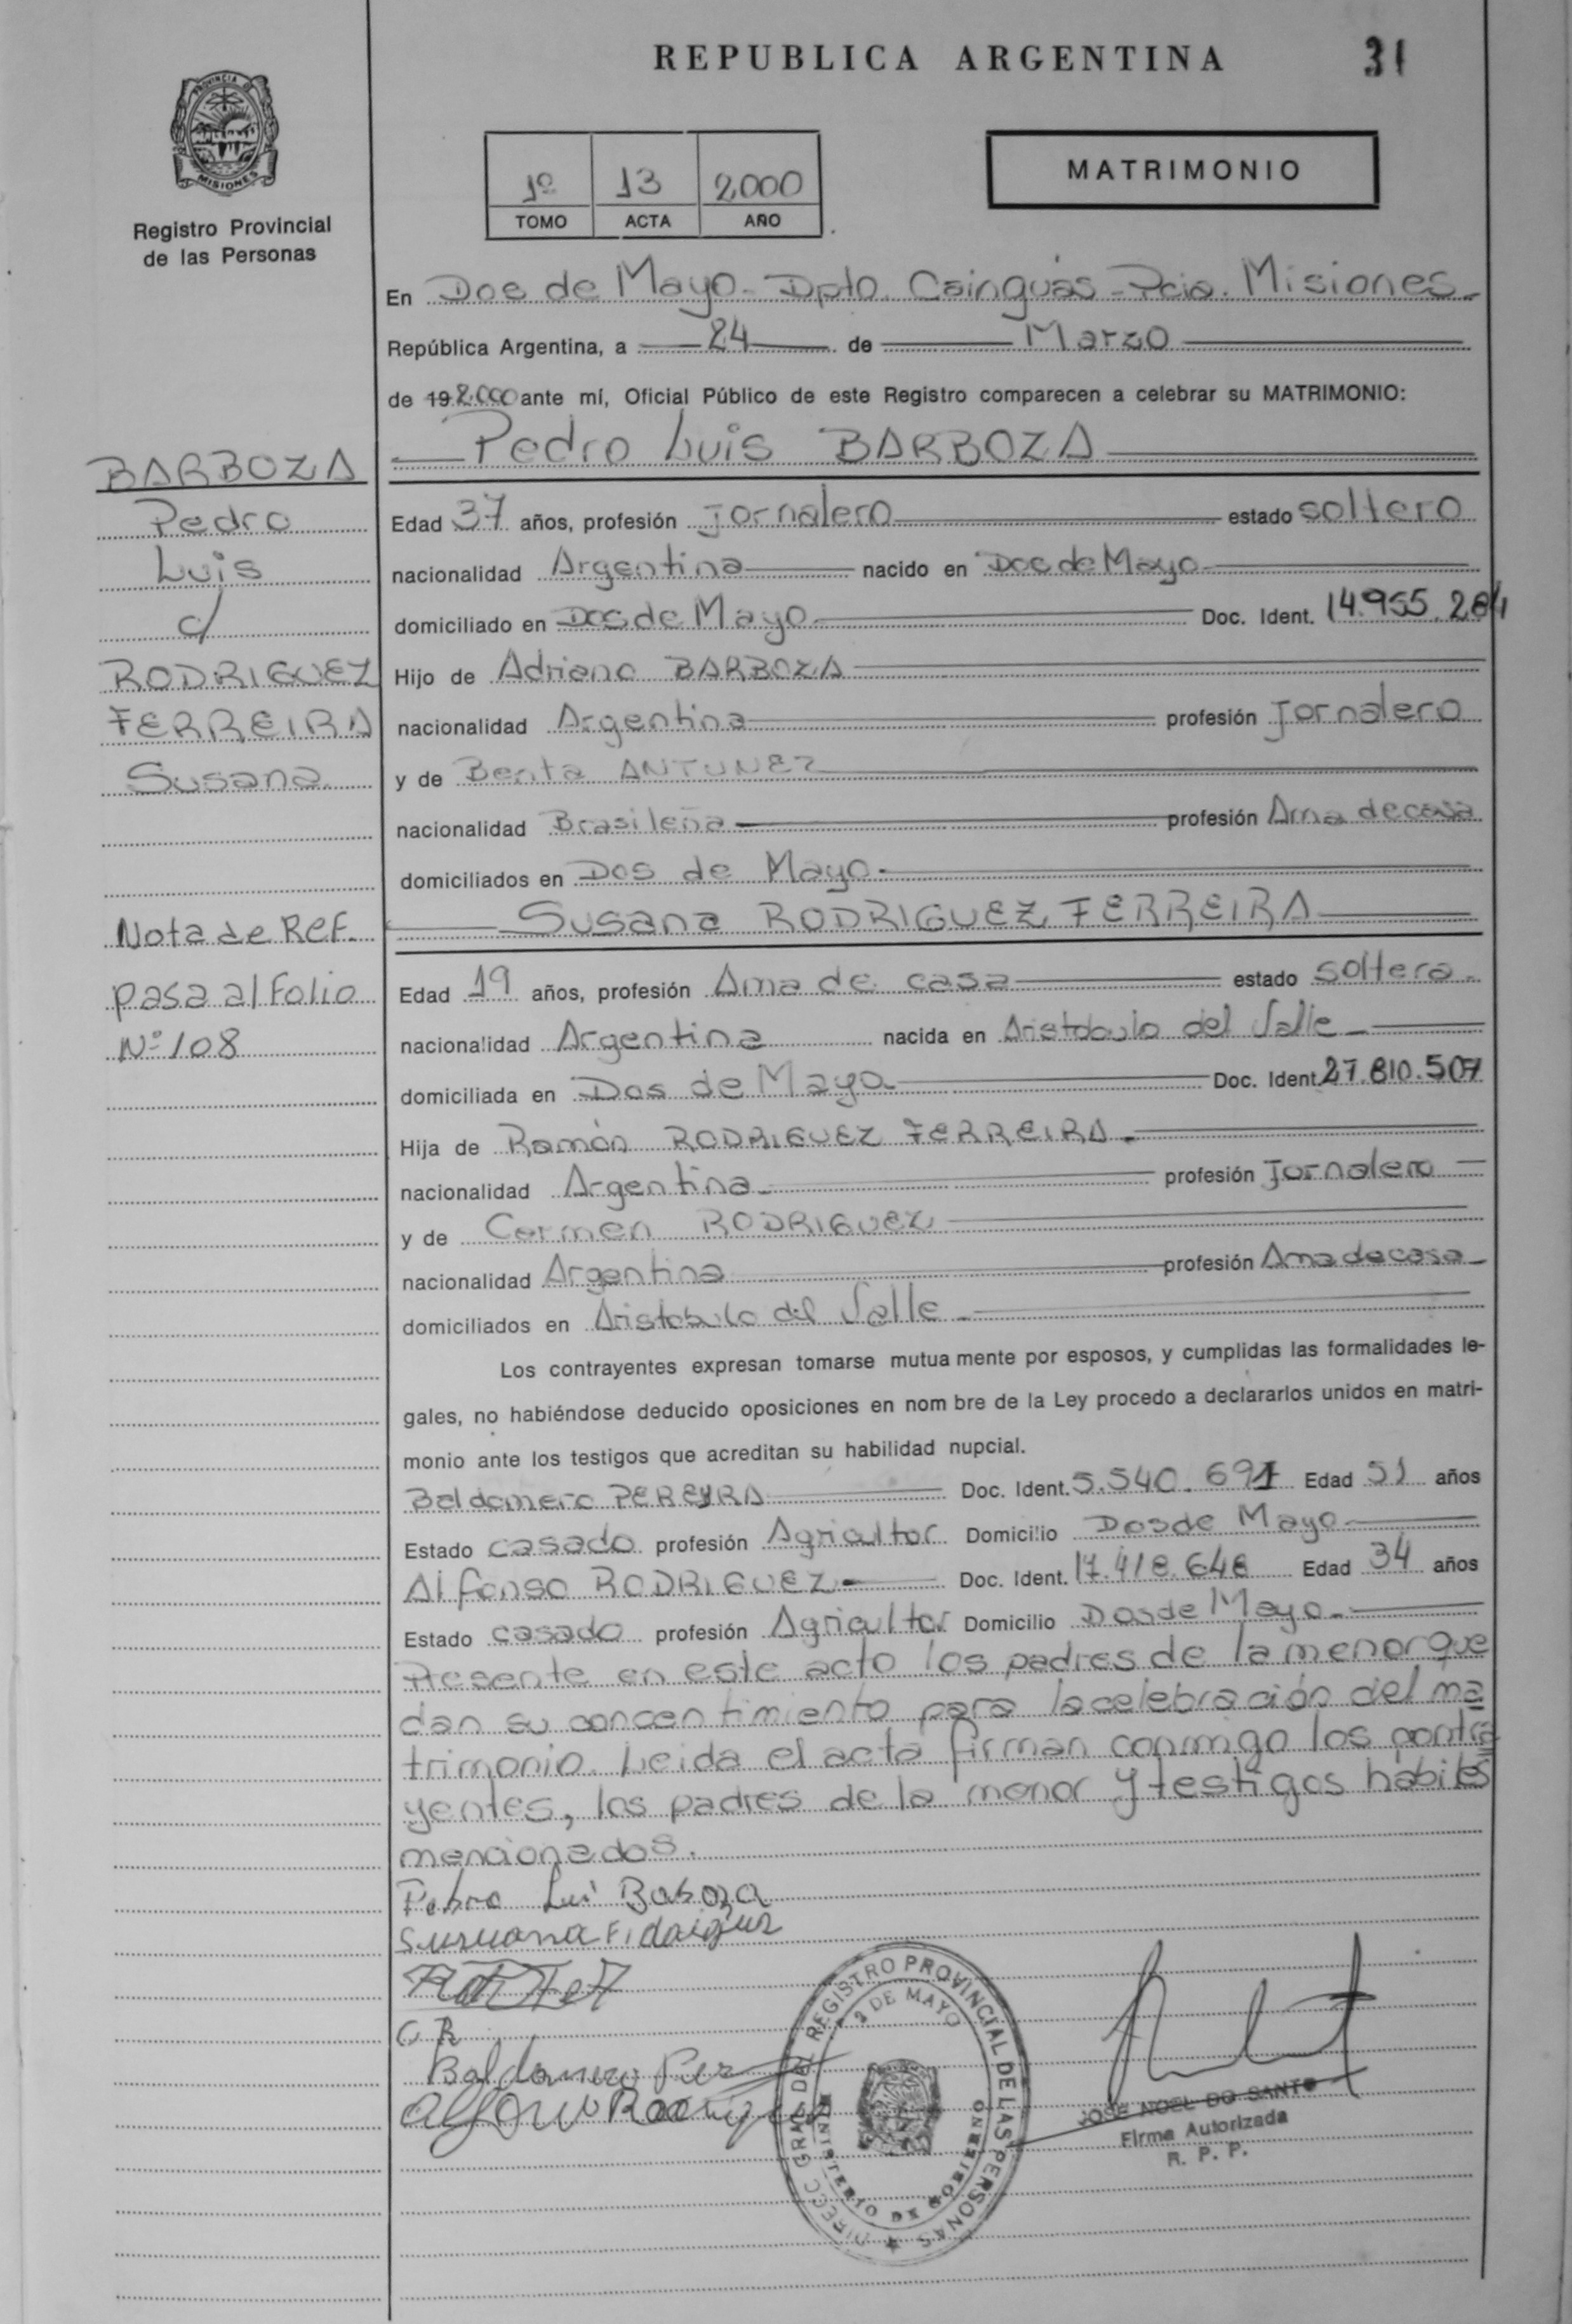 REPUBLICA ARGENTINA
31
PROVINCIA DE
MISIONES
Registro Provincial
de las Personas
1º 13 2000
TOMO ACTA AÑO
MATRIMONIO
En Dos de Mayo - Dpto. Cainguás - Pcia. Misiones
República Argentina, a 24 de Marzo
de 192000 ante mí, Oficial Público de este Registro comparecen a celebrar su MATRIMONIO:
Pedro Luis BARBOZA
Edad 37 años, profesión Jornalero estado soltero
nacionalidad Argentina nacido en Dos de Mayo
domiciliado en Dos de Mayo Doc. Ident. 14.955.284
Hijo de Adriano BARBOZA
nacionalidad Argentina profesión Jornalero
y de Benta ANTUNEZ
nacionalidad Brasileña profesión Ama de casa
domiciliados en Dos de Mayo
Susana RODRIGUEZ FERREIRA
Edad 19 años, profesión Ama de casa estado soltera
nacionalidad Argentina nacida en Aristobulo del Valle
domiciliada en Dos de Mayo Doc. Ident. 27.810.507
Hija de Ramón RODRIGUEZ FERREIRA
nacionalidad Argentina profesión Jornalero
y de Carmen RODRIGUEZ
nacionalidad Argentina profesión Ama de casa
domiciliados en Aristobulo del Valle
Los contrayentes expresan tomarse mutua mente por esposos, y cumplidas las formalidades le-
gales, no habiéndose deducido oposiciones en nom bre de la Ley procedo a declararlos unidos en matri-
monio ante los testigos que acreditan su habilidad nupcial.
Baldomero PEREYRA Doc. Ident. 5.540.691 Edad 51 años
Estado casado profesión Agricultor Domicilio Dos de Mayo
Alfonso RODRIGUEZ Doc. Ident. 17.418.648 Edad 34 años
Estado casado profesión Agricultor Domicilio Dos de Mayo
Presente en este acto los padres de la menor que
dan su concentimiento para la celebración del ma
trimonio. Leida el acta firman conmigo los contra
yentes, los padres de la menor y testigos habiles
mencionados.
BARBOZA
Pedro
Luis
c/
RODRIGUEZ
FERREIRA
Susana
Nota de Ref.
pasa al Folio
Nº 108
Pedro Lui Baboza
C R
Baldomero Per
Alfonso Rodriguez
DIRECC GRAL DEL REGISTRO PROVINCIAL DE LAS PERSONAS
2 DE MAYO
MINISTERIO DE GOBIERNO
JOSE NOEL DO SANTO
Firma Autorizada
R. P. P.